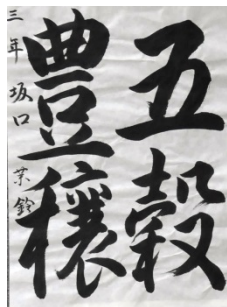 五穀
豊穣
三年 坂口 茉鈴